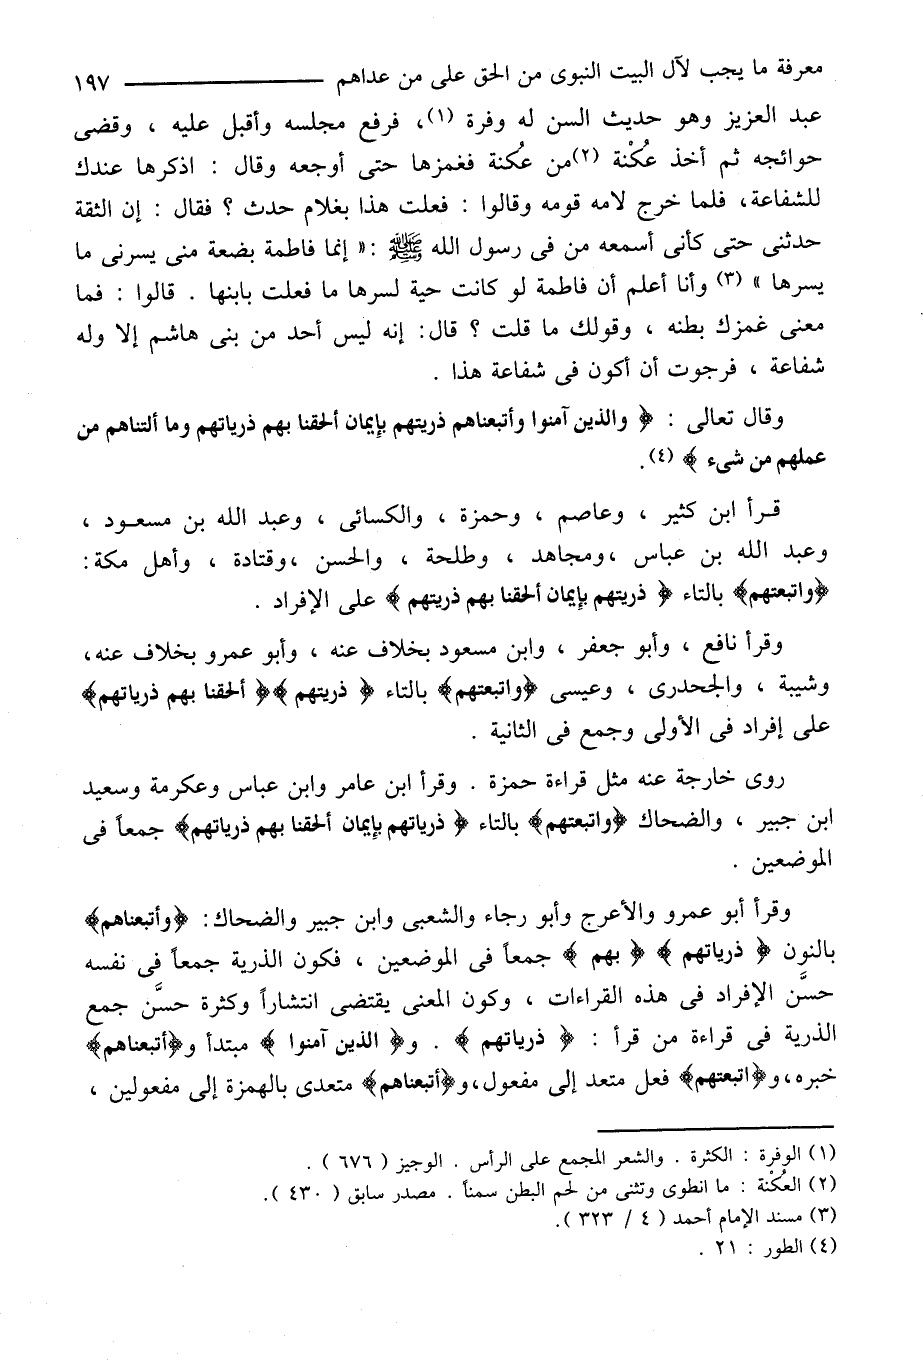 معرفة ما يجب لآل البيت النبوى من الحق على من عداهم ــــــــــــــــ ١٩٧
عبد العزيز وهو حديث السن له وفرة (١)، فرفع مجلسه وأقبل عليه ، وقضى
حوائجه ثم أخذ عُكْنة (٢)من عُكنة فغمزها حتى أوجعه وقال : اذكرها عندك
للشفاعة، فلما خرج لامه قومه وقالوا : فعلت هذا بغلام حدث ؟ فقال : إن الثقة
حدثنى حتى كأنى أسمعه من فى رسول الله ﷺ :« إنما فاطمة بضعة منى يسرنى ما
يسرها » (٣) وأنا أعلم أن فاطمة لو كانت حية لسرها ما فعلت بابنها . قالوا : فما
معنى غمزك بطنه ، وقولك ما قلت ؟ قال: إنه ليس أحد من بنى هاشم إلا وله
شفاعة ، فرجوت أن أكون فى شفاعة هذا .
وقال تعالى : ﴿ والذين آمنوا وأتبعناهم ذريتهم بإيمان ألحقنا بهم ذرياتهم وما ألتناهم من
عملهم من شىء ﴾ (٤).
قـرأ ابن كثير ، وعاصم ، وحمزة ، والكسائى ، وعبد الله بن مسعود ،
وعبد الله بن عباس ،ومجاهد ، وطلحة ، والحسن ،وقتادة ، وأهل مكة:
﴿واتبعتهم﴾ بالتاء ﴿ ذريتهم بإيمان ألحقنا بهم ذريتهم ﴾ على الإفراد .
وقرأ نافع ، وأبو جعفر ، وابن مسعود بخلاف عنه ، وأبو عمرو بخلاف عنه،
وشيبة ، والجحدرى ، وعيسى ﴿واتبعتهم﴾ بالتاء ﴿ ذريتهم ﴾﴿ ألحقنا بهم ذرياتهم﴾
على إفراد فى الأولى وجمع فى الثانية .
روى خارجة عنه مثل قراءة حمزة . وقرأ ابن عامر وابن عباس وعكرمة وسعيد
ابن جبير ، والضحاك ﴿واتبعتهم﴾ بالتاء ﴿ ذرياتهم بإيمان ألحقنا بهم ذرياتهم﴾ جمعاً فى
الموضعين .
وقرأ أبو عمرو والأعرج وأبو رجاء والشعبى وابن جبير والضحاك: ﴿وأتبعناهم﴾
بالنون ﴿ ذرياتهم ﴾ ﴿ بهم ﴾ جمعاً فى الموضعين ، فكون الذرية جمعاً فى نفسه
حسَّن الإفراد فى هذه القراءات ، وكون المعنى يقتضى انتشاراً وكثرة حسَّن جمع
الذرية فى قراءة من قرأ : ﴿ ذرياتهم ﴾ . و﴿ الذين آمنوا ﴾ مبتدأ و﴿أتبعناهم﴾
خبره،و﴿اتبعتهم﴾ فعل متعد إلى مفعول،و﴿أتبعناهم﴾ متعدى بالهمزة إلى مفعولين ،
(١) الوفرة : الكثرة . والشعر المجمع على الرأس . الوجيز ( ٦٧٦ ) .
(٢) العُكْنة : ما انطوى وتثنى من لحم البطن سمناً . مصدر سابق ( ٤٣٠ ).
(٣) مسند الإمام أحمد ( ٤ / ٣٢٣ ).
(٤) الطور : ٢١ .